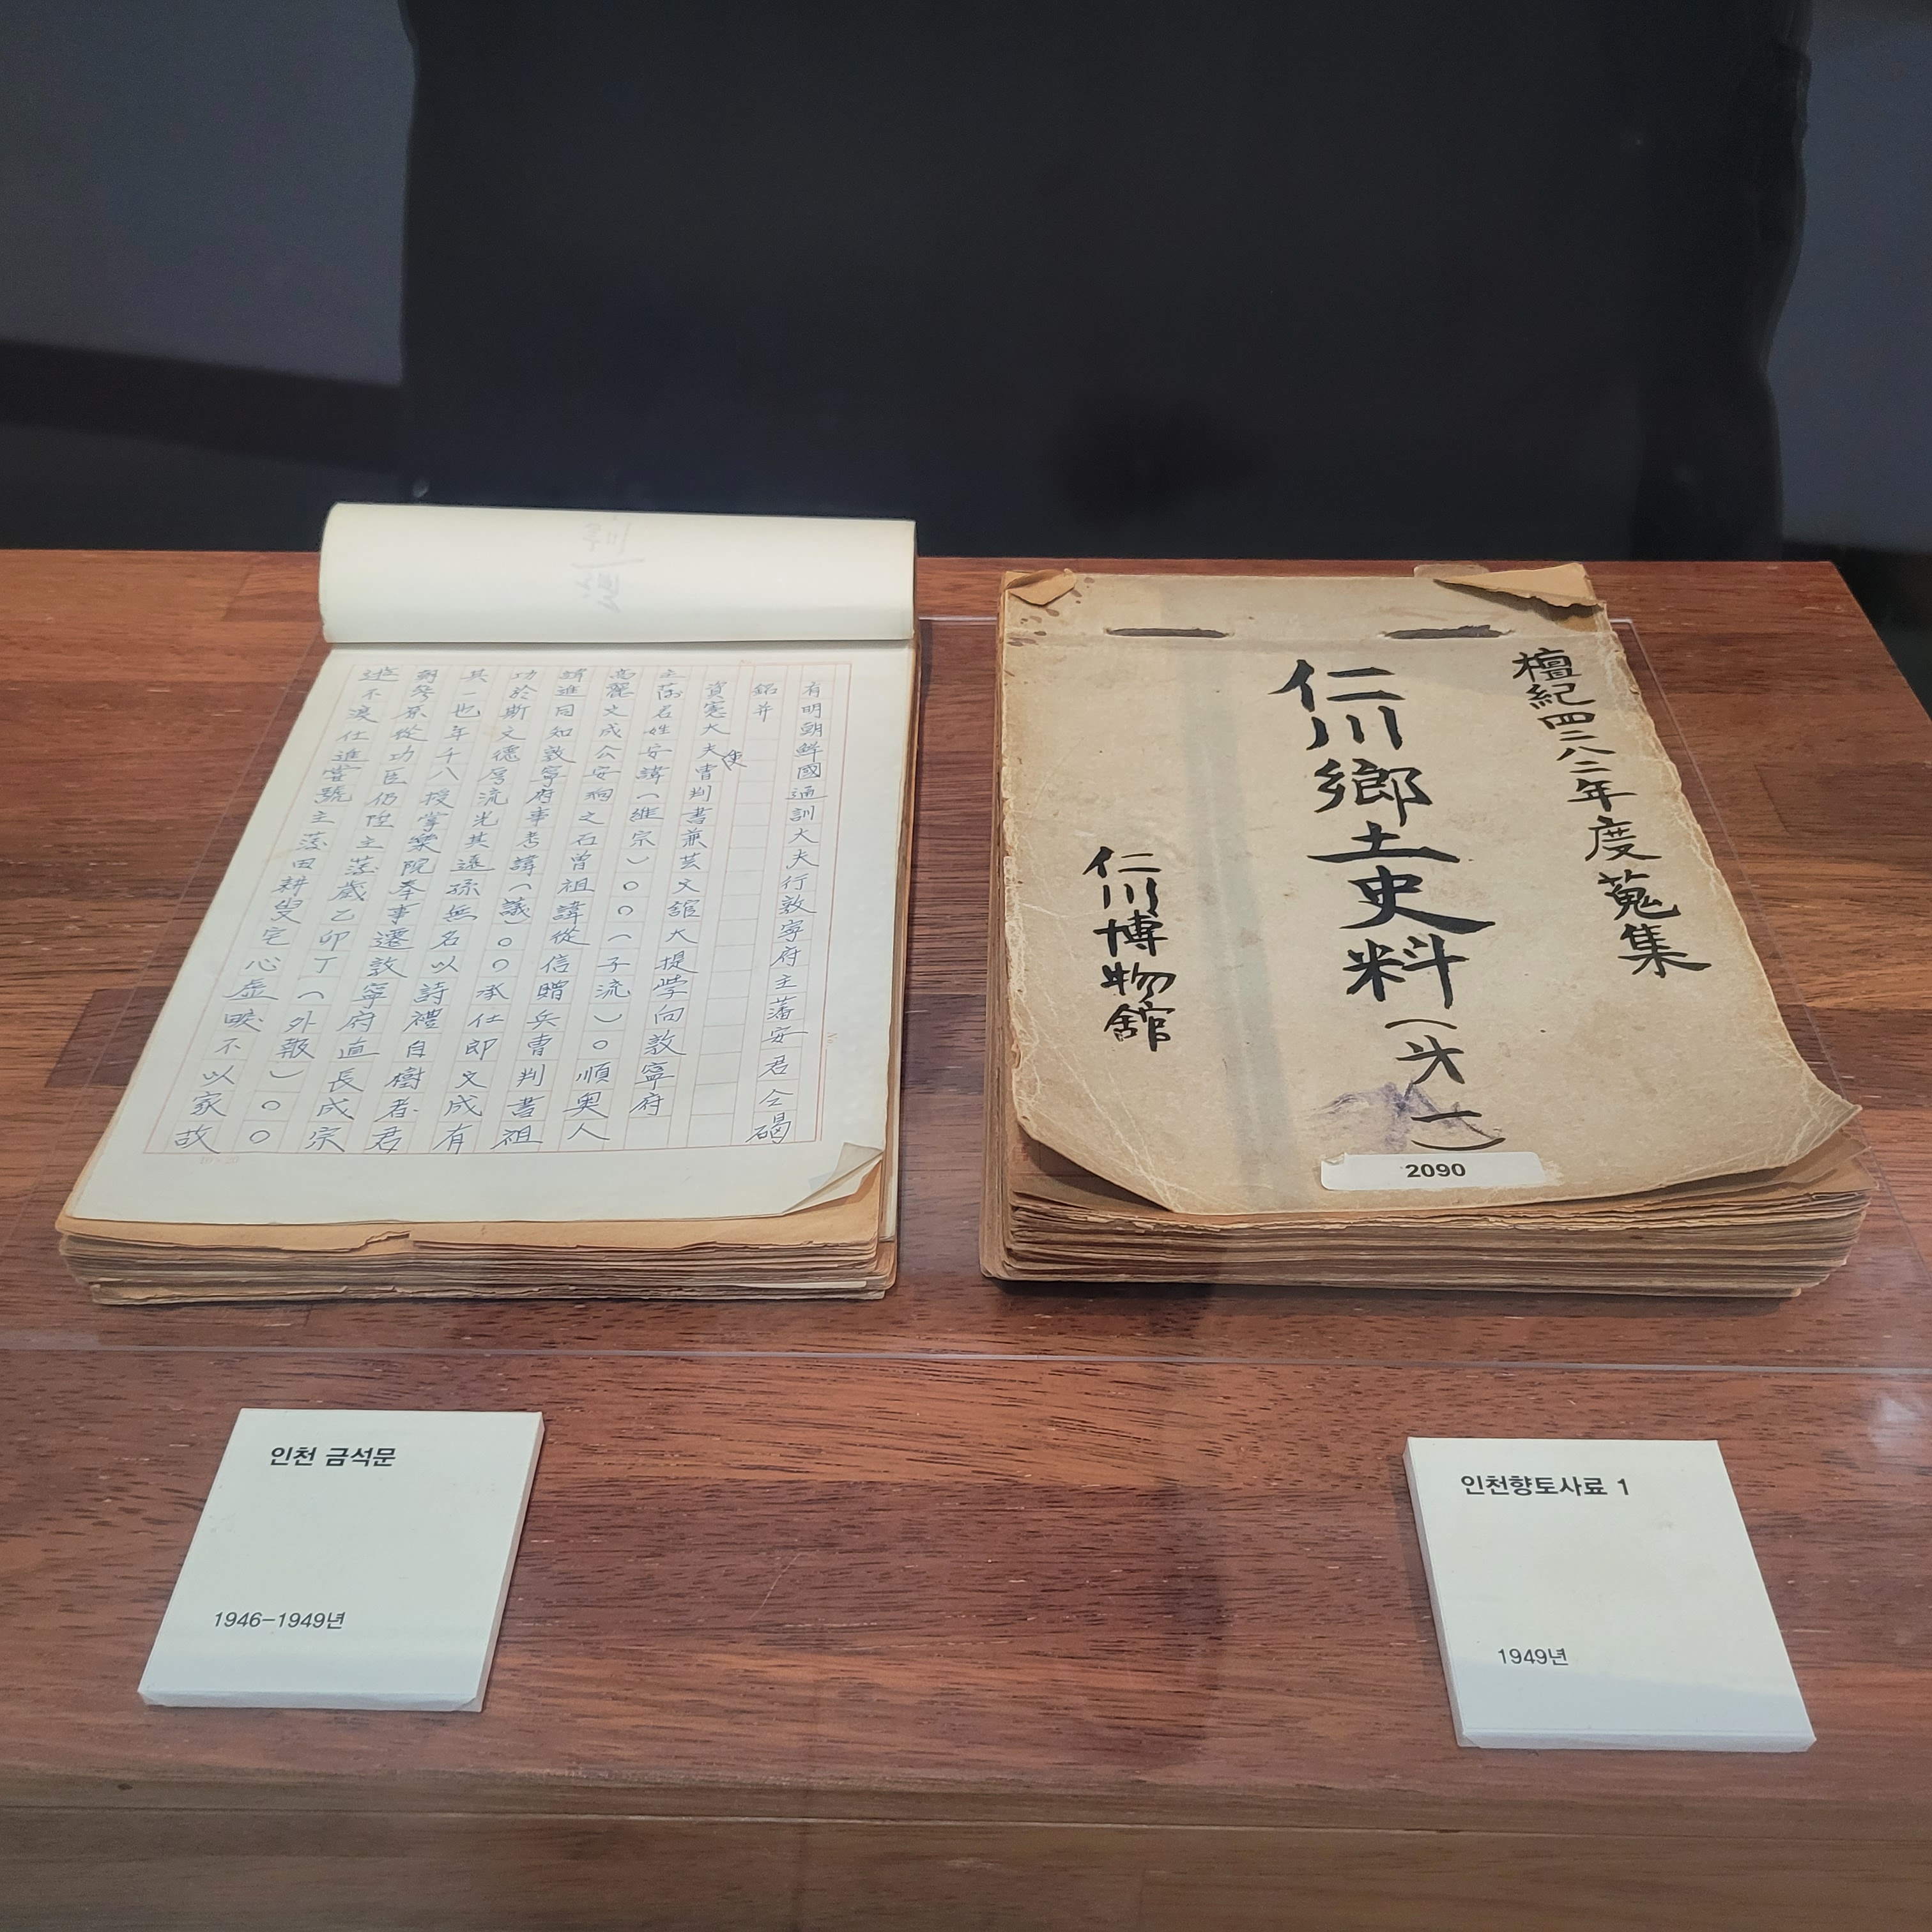 有明朝鮮國通訓大夫行敦寧府主簿安君仝碣
銘并
資憲大夫曹判書兼芸文舘大提學向敦寧府
使
主簿名姓安諱(維宗)○○(子流)○順奧人
高麗文成公安珦之石曾祖諱從信贈兵曹判書祖
諱進同知敦寧府事考諱(議)○○承仕郎文成有
功於斯文德厚流光其遥孫無名以詩禮自樹者君
其一也年千八授掌樂院奉事遷敦寧府直長成宗
朝參原從功臣仍陞主簿歲乙卯丁(外報)○○
不渡仕進當號主簿田耕叟宅心虛不以家故
檀紀四二八二年度蒐集
仁川鄕土史料(其一)
仁川博物舘
2090
인천 금석문
1946-1949년
인천향토사료 1
1949년